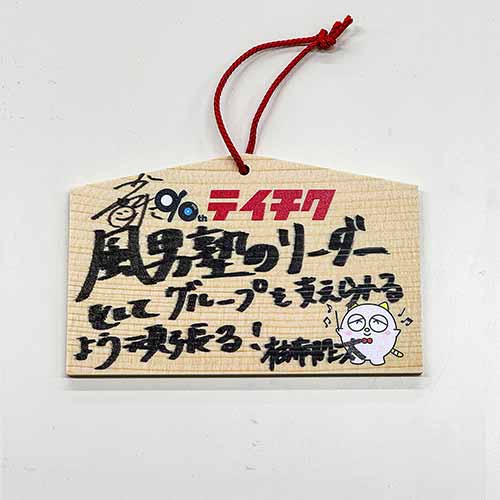 90th テイチク
風男塾のリーダー
としてグループを支えられる
よう頑張る!